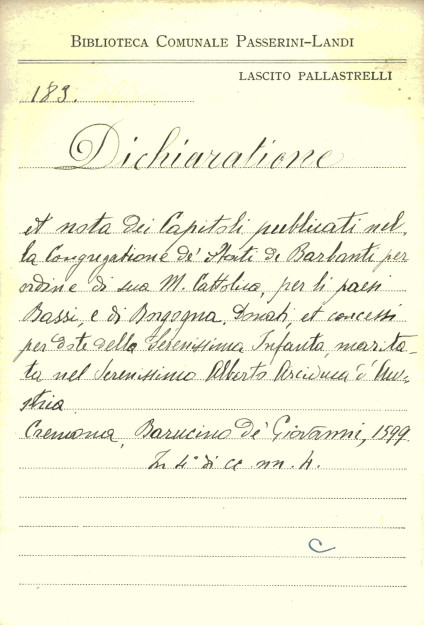 BIBLIOTECA COMUNALE PASSERINI-LANDI
LASCITO PALLASTRELLI
183.
Dichiaratione
et nota dei Capitoli publicati nel-
la Congregatione de' Stati de Barbanti per
ordine di sua M. Cattolica, per li paesi
Bassi, e di Borgogna. Donati, et concessi
per dote della Serenissima Infanta, marita-
ta nel Serenissimo Alberto Arciduca d'Au-
stria
Cremona, Barucino de' Giovanni, 1599
In 4° di cc. nn. 4.
C